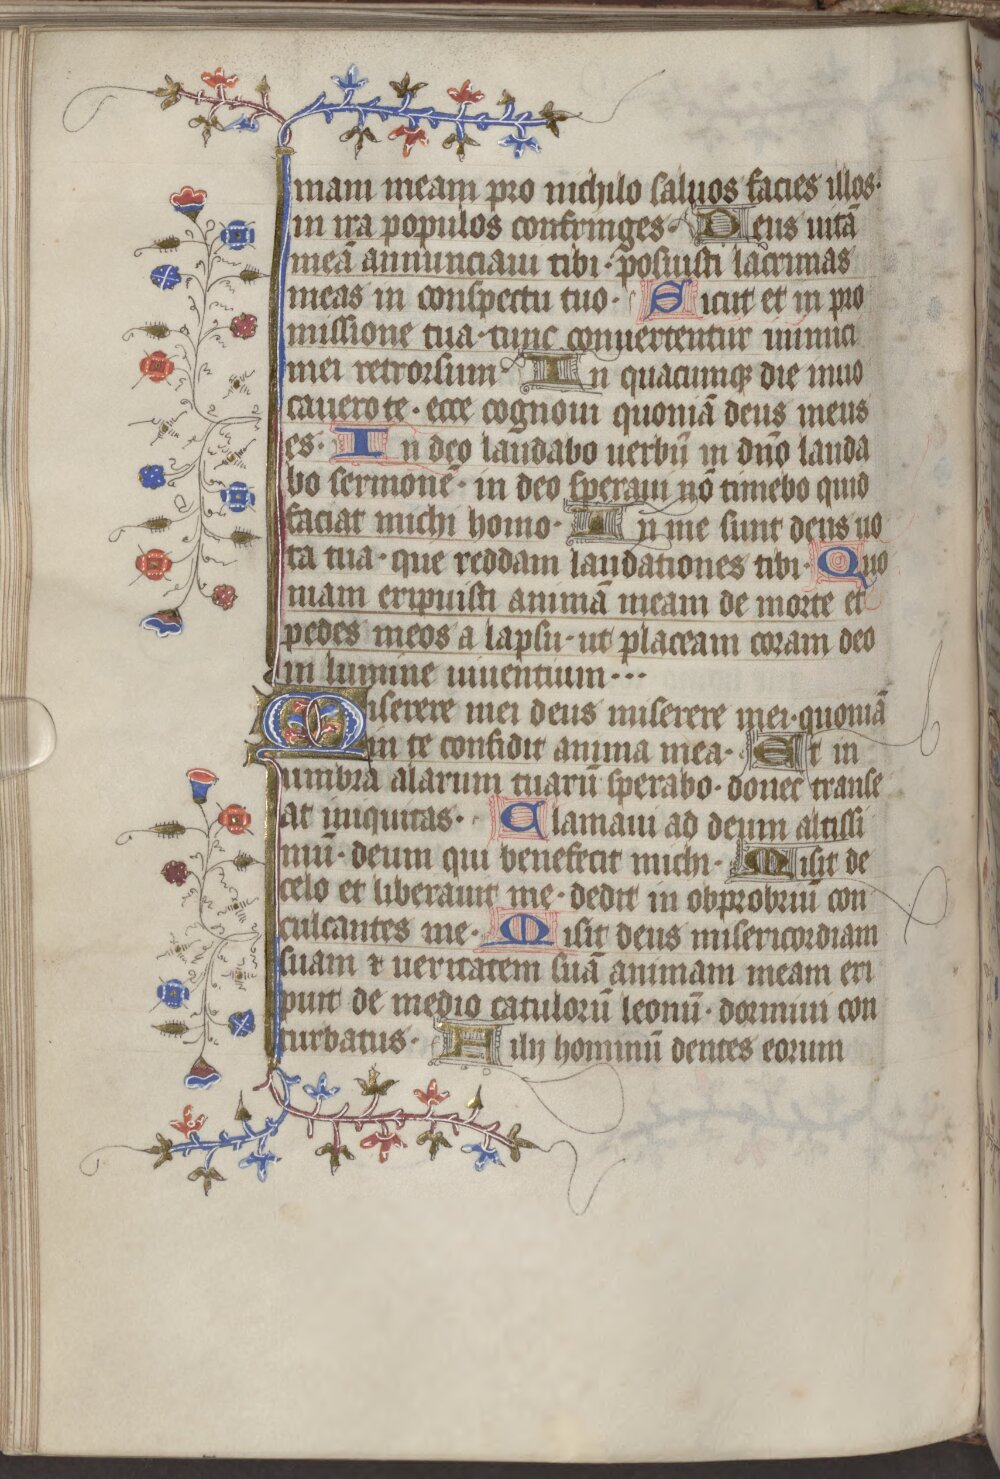 mam meam pro nichilo saluos facies illos·
in ira populos confringes· Deus uitā
meā annunciaui tibi· posuisti lacrimas
meas in conspectu tuo· Sicut et in pro
missione tua· tunc conuertentur inimici
mei retrorsum In quacumqꝫ die inuo
cauero te· ecce cognoui quoniā deus meus
es· In deo laudabo uerbū in dn̄o lauda
bo sermonē· in deo speraui nō timebo quid
faciat michi homo· In me sunt deus uo
ta tua· que reddam laudationes tibi· Quo
niam eripuisti animā meam de morte et
pedes meos a lapsu· ut placeam coram deo
in lumine uiuentium···
Miserere mei deus miserere mei· quoniā
in te confidit anima mea· Et in
umbra alarum tuarū sperabo· donec transe
at iniquitas· Clamaui ad deum altissi
mū· deum qui benefecit michi· Misit de
celo et liberauit me· dedit in obprobriū con
culcantes me· Misit deus misericordiam
suam ⁊ ueritatem suā animam meam eri
puit de medio catulorū leonū· dormiui con
turbatus· Filij hominū dentes eorum